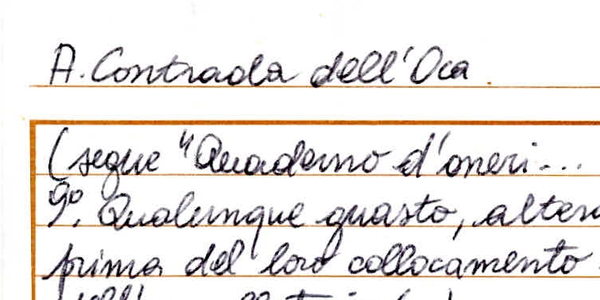 A. Contrada dell'Oca.
(segue "Quaderno d'oneri...
9°. Qualunque guasto, alter
prima del loro collocamento